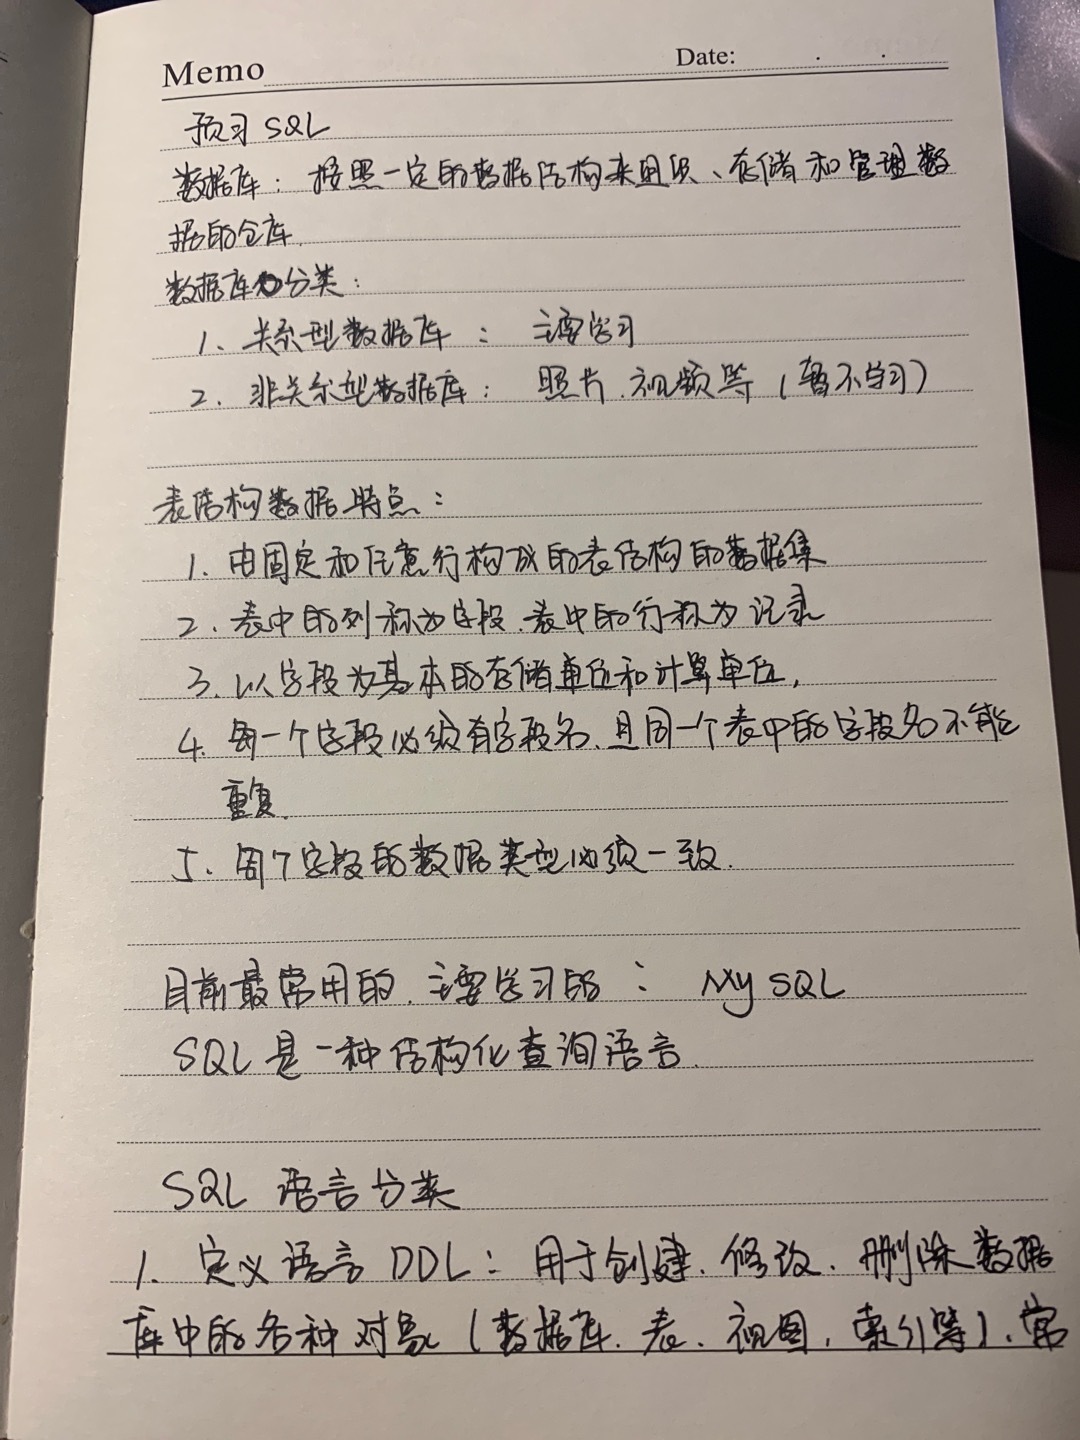 Memo Date: . .
预习 SQL
数据库：按照一定的数据结构来组织、存储和管理数
据的仓库.
数据库的分类：
1、关系型数据库： 主要学习
2、非关系型数据库： 照片、视频等（暂不学习）
表结构数据特点：
1、由固定和任意行构成的表结构的数据集
2、表中的列称为字段、表中的行称为记录
3、以字段为基本的存储单位和计算单位,
4、每一个字段必须有字段名、且同一个表中的字段名不能
重复.
5、同个字段的数据类型必须一致.
目前最常用的、主要学习的： My SQL
SQL 是一种结构化查询语言.
SQL 语言分类
1、定义语言 DDL：用于创建、修改、删除数据
库中的各种对象（数据库、表、视图、索引等）、常